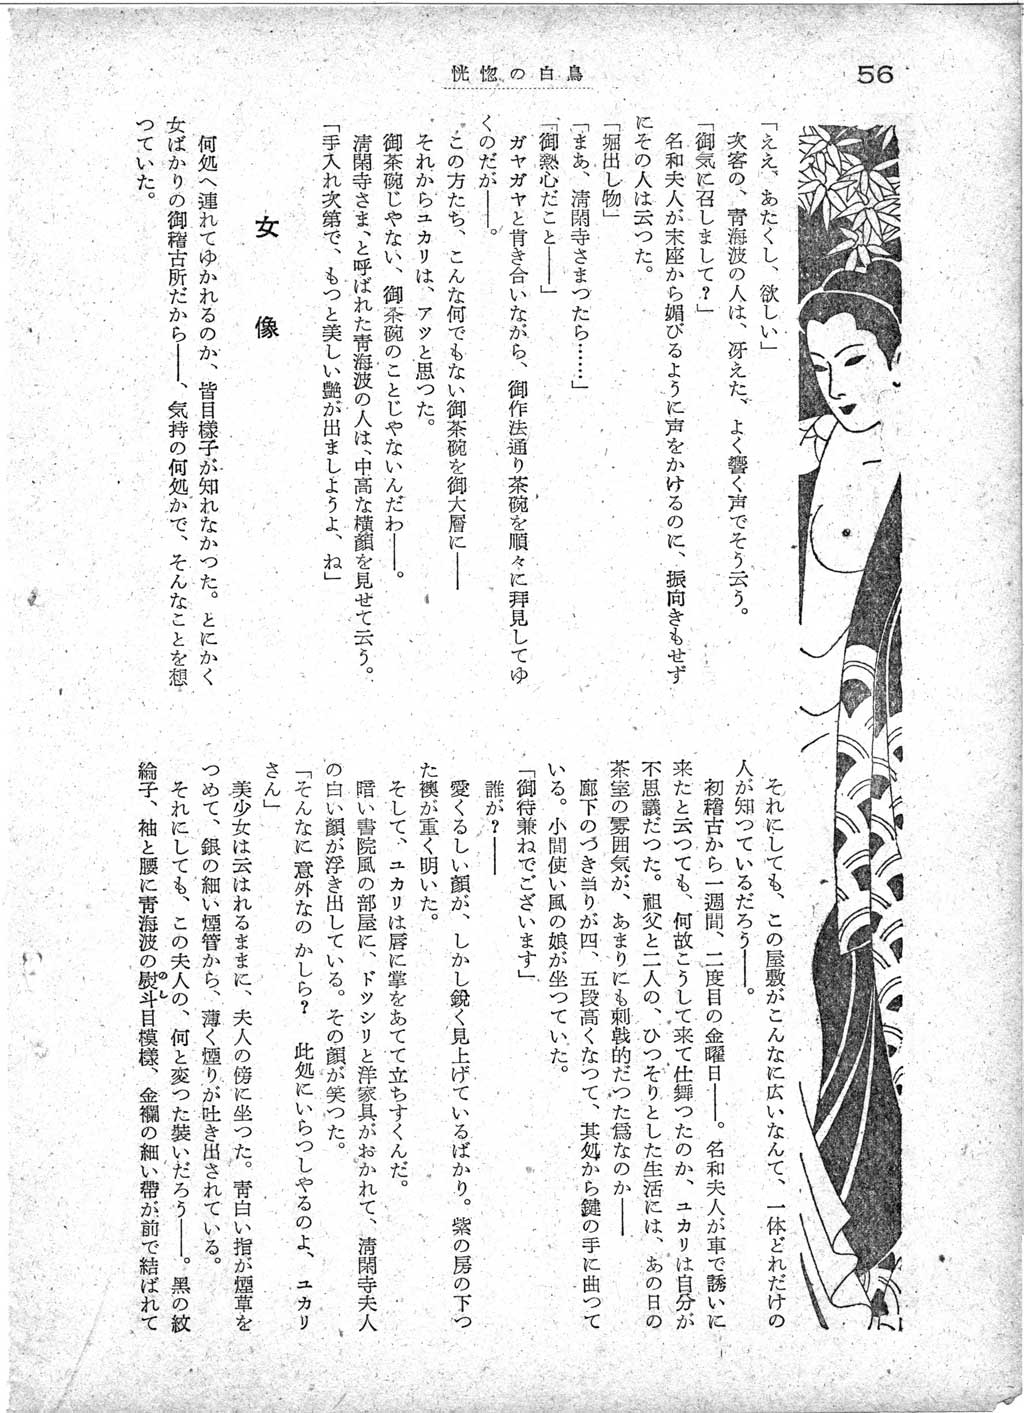 56
恍惚の白鳥
「ええ、あたくし、欲しい」
次客の、青海波の人は、冴えた、よく響く声でそう云う。
「御気に召しまして？」
名和夫人が末座から媚びるように声をかけるのに、振向きもせず
にその人は云つた。
「堀出し物」
「まあ、淸閑寺さまつたら……」
「御熱心だこと――」
ガヤガヤと肯き合いながら、御作法通り茶碗を順々に拝見してゆ
くのだが――。
この方たち、こんな何でもない御茶碗を御大層に――
それからユカリは、アツと思つた。
御茶碗じやない、御茶碗のことじやないんだわ――。
淸閑寺さま、と呼ばれた青海波の人は、中高な横顔を見せて云う。
「手入れ次第で、もつと美しい艶が出ましようよ、ね」
女像
何処へ連れてゆかれるのか、皆目様子が知れなかつた。とにかく
女ばかりの御稽古所だから――、気持の何処かで、そんなことを想
つていた。
それにしても、この屋敷がこんなに広いなんて、一体どれだけの
人が知つているだろう――。
初稽古から一週間、二度目の金曜日――。名和夫人が車で誘いに
来たと云つても、何故こうして来て仕舞つたのか、ユカリは自分が
不思議だつた。祖父と二人の、ひつそりとした生活には、あの日の
茶室の雰囲気が、あまりにも刺戟的だつた爲なのか――
廊下のつき当りが四、五段高くなつて、其処から鍵の手に曲つて
いる。小間使い風の娘が坐つていた。
「御待兼ねでございます」
誰が？――
愛くるしい顔が、しかし鋭く見上げているばかり。紫の房の下つ
た襖が重く明いた。
そして、ユカリは唇に掌をあてて立ちすくんだ。
暗い書院風の部屋に、ドツシリと洋家具がおかれて、淸閑寺夫人
の白い顔が浮き出している。その顔が笑つた。
「そんなに意外なのかしら？　此処にいらつしやるのよ、ユカリ
さん」
美少女は云はれるままに、夫人の傍に坐つた。青白い指が煙草を
つめて、銀の細い煙管から、薄く煙りが吐き出されている。
それにしても、この夫人の、何と変つた装いだろう――。黒の紋
綸子、袖と腰に青海波の熨斗目模様、金襴の細い帯が前で結ばれて
のし